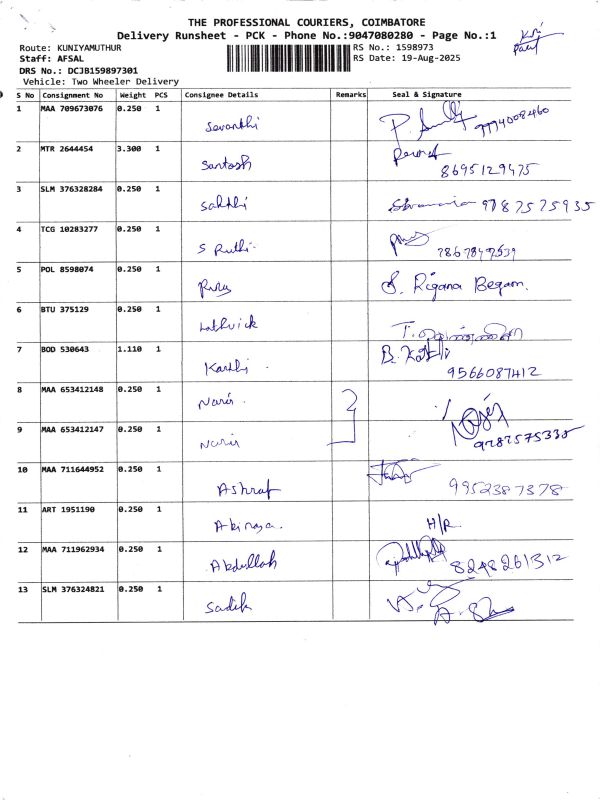 THE PROFESSIONAL COURIERS, COIMBATORE
Delivery Runsheet - PCK - Phone No.:9047080280 - Page No.:1
Route: KUNIYAMUTHUR RS No.: 1598973
Staff: AFSAL RS Date: 19-Aug-2025
DRS No.: DCJB159897301
Vehicle: Two Wheeler Delivery
S No Consignment No Weight PCS Consignee Details Remarks Seal & Signature
1 MAA 709673076 0.250 1 Sevanthi 9994008460
2 MTR 2644454 3.300 1 Santosh 8695129475
3 SLM 376328284 0.250 1 Sakthi 9787575935
4 TCG 10283277 0.250 1 S Ruthi. 7867849539
5 POL 8598074 0.250 1 S. Rigana Begam.
6 BTU 375129 0.250 1 Lathvick T.
7 BOD 530643 1.110 1 Karthi. B. 9566087412
8 MAA 653412148 0.250 1 Narir.
9 MAA 653412147 0.250 1 Narir 9787575335
10 MAA 711644952 0.250 1 Ashraf 9952387378
11 ART 1951190 0.250 1 Akinaya. H/R
12 MAA 711962934 0.250 1 Abdullah 8248261312
13 SLM 376324821 0.250 1 Sadik